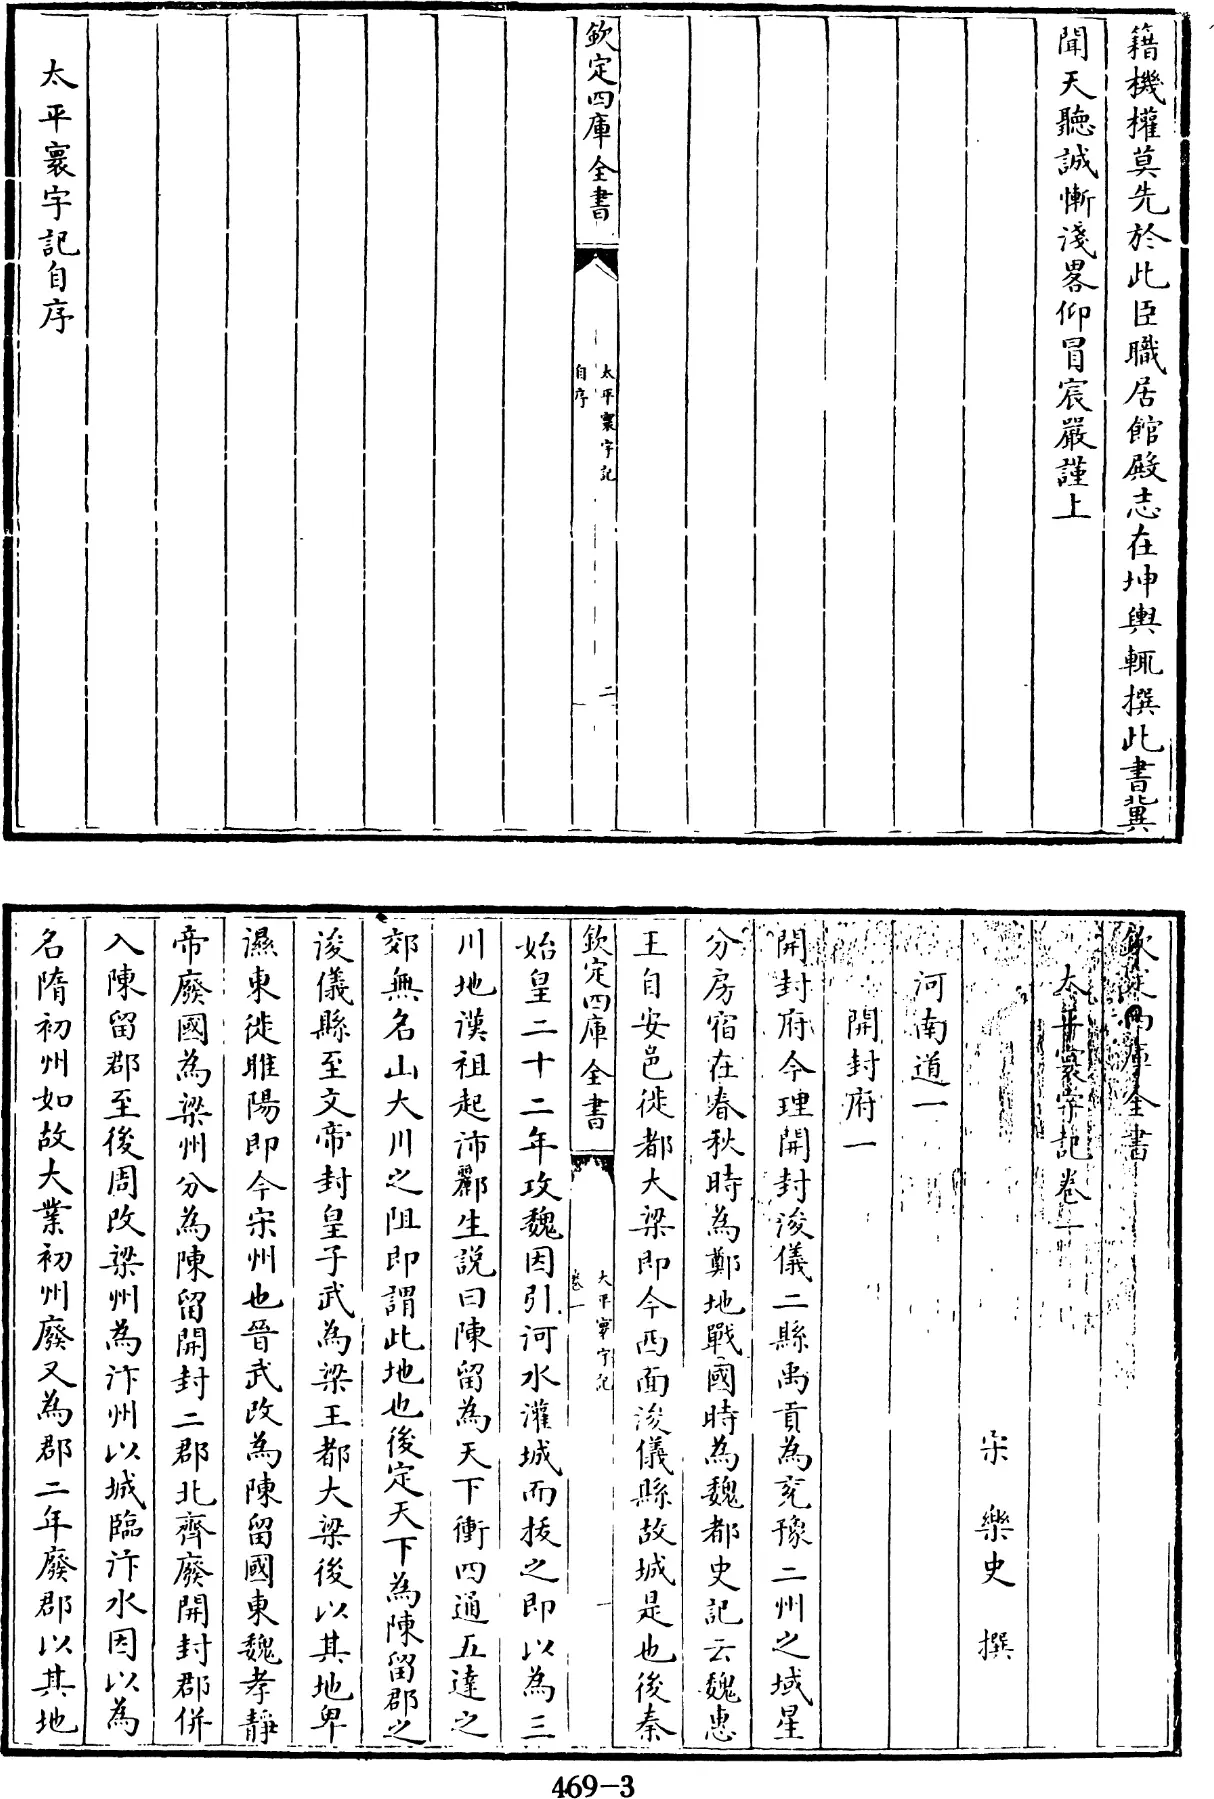 籍機權莫先於此臣職居館殿志在坤輿輒撰此書冀
聞天聽誠慚淺畧仰冒宸嚴謹上
欽定四庫全書
太平寰宇記
自序
二
太平寰宇記自序
欽定四庫全書
太平寰宇記卷一
宋 樂史 撰
河南道一
開封府一
開封府今理開封浚儀二縣禹貢為兖豫二州之域星
分房宿在春秋時為鄭地戰國時為魏都史記云魏惠
王自安邑徙都大梁即今西面浚儀縣故城是也後秦
欽定四庫全書
太平寰宇記
卷一
一
始皇二十二年攻魏因引河水灌城而拔之即以為三
川地漢祖起沛酈生説曰陳留為天下衝四通五達之
郊無名山大川之阻即謂此地也後定天下為陳留郡之
浚儀縣至文帝封皇子武為梁王都大梁後以其地卑
濕東徙睢陽即今宋州也晉武改為陳留國東魏孝靜
帝廢國為梁州分為陳留開封二郡北齊廢開封郡併
入陳留郡至後周改梁州為汴州以城臨汴水因以為
名隋初州如故大業初州廢又為郡二年廢郡以其地
469-3